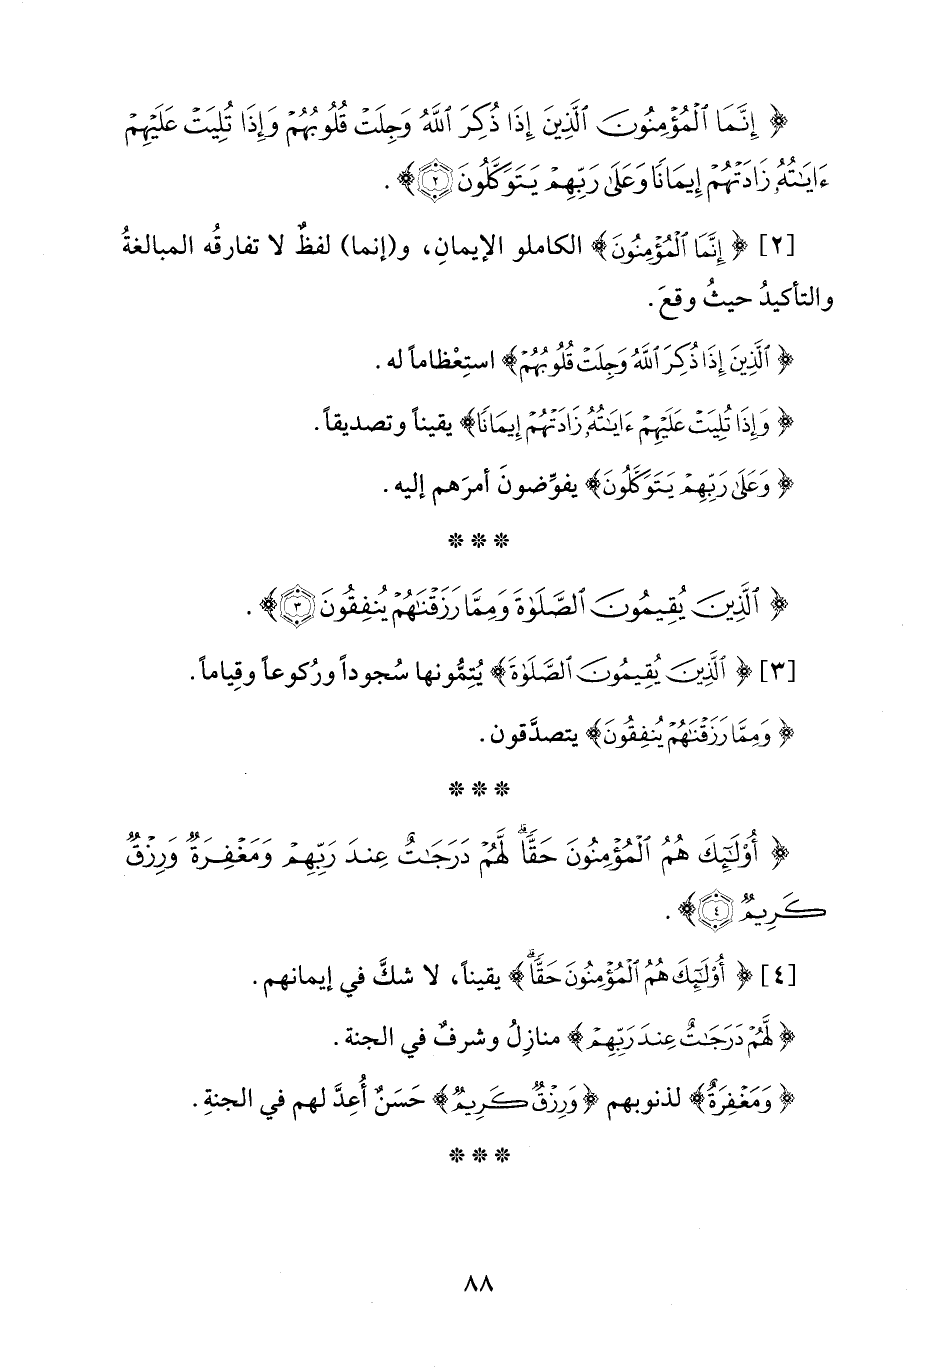 ﴿ إِنَّمَا ٱلْمُؤْمِنُونَ ٱلَّذِينَ إِذَا ذُكِرَ ٱللَّهُ وَجِلَتْ قُلُوبُهُمْ وَإِذَا تُلِيَتْ عَلَيْهِمْ
ءَايَـٰتُهُۥ زَادَتْهُمْ إِيمَانًا وَعَلَىٰ رَبِّهِمْ يَتَوَكَّلُونَ ٢﴾ .
[٢] ﴿ إِنَّمَا ٱلْمُؤْمِنُونَ﴾ الكاملو الإيمانِ، و(إنما) لفظٌ لا تفارقُه المبالغةُ
والتأكيدُ حيثُ وقعَ.
﴿ ٱلَّذِينَ إِذَا ذُكِرَ ٱللَّهُ وَجِلَتْ قُلُوبُهُمْ﴾ استِعْظاماً له.
﴿ وَإِذَا تُلِيَتْ عَلَيْهِمْ ءَايَـٰتُهُۥ زَادَتْهُمْ إِيمَانًا﴾ يقيناً وتصديقاً.
﴿ وَعَلَىٰ رَبِّهِمْ يَتَوَكَّلُونَ﴾ يفوِّضونَ أمرَهم إليه.
* * *
﴿ ٱلَّذِينَ يُقِيمُونَ ٱلصَّلَوٰةَ وَمِمَّا رَزَقْنَـٰهُمْ يُنفِقُونَ ٣﴾ .
[٣] ﴿ ٱلَّذِينَ يُقِيمُونَ ٱلصَّلَوٰةَ﴾ يُتِمُّونها سُجوداً ورُكوعاً وقِياماً.
﴿ وَمِمَّا رَزَقْنَـٰهُمْ يُنفِقُونَ﴾ يتصدَّقون.
* * *
﴿ أُوْلَـٰٓئِكَ هُمُ ٱلْمُؤْمِنُونَ حَقًّاۚ لَّهُمْ دَرَجَـٰتٌ عِندَ رَبِّهِمْ وَمَغْفِرَةٌ وَرِزْقٌ
كَرِيمٌ ٤﴾ .
[٤] ﴿ أُوْلَـٰٓئِكَ هُمُ ٱلْمُؤْمِنُونَ حَقًّاۚ﴾ يقيناً، لا شكَّ في إيمانهم.
﴿ لَّهُمْ دَرَجَـٰتٌ عِندَ رَبِّهِمْ﴾ منازلُ وشرفٌ في الجنة.
﴿ وَمَغْفِرَةٌ﴾ لذنوبهم ﴿ وَرِزْقٌ كَرِيمٌ﴾ حَسَنٌ أُعِدَّ لهم في الجنةِ.
* * *
٨٨